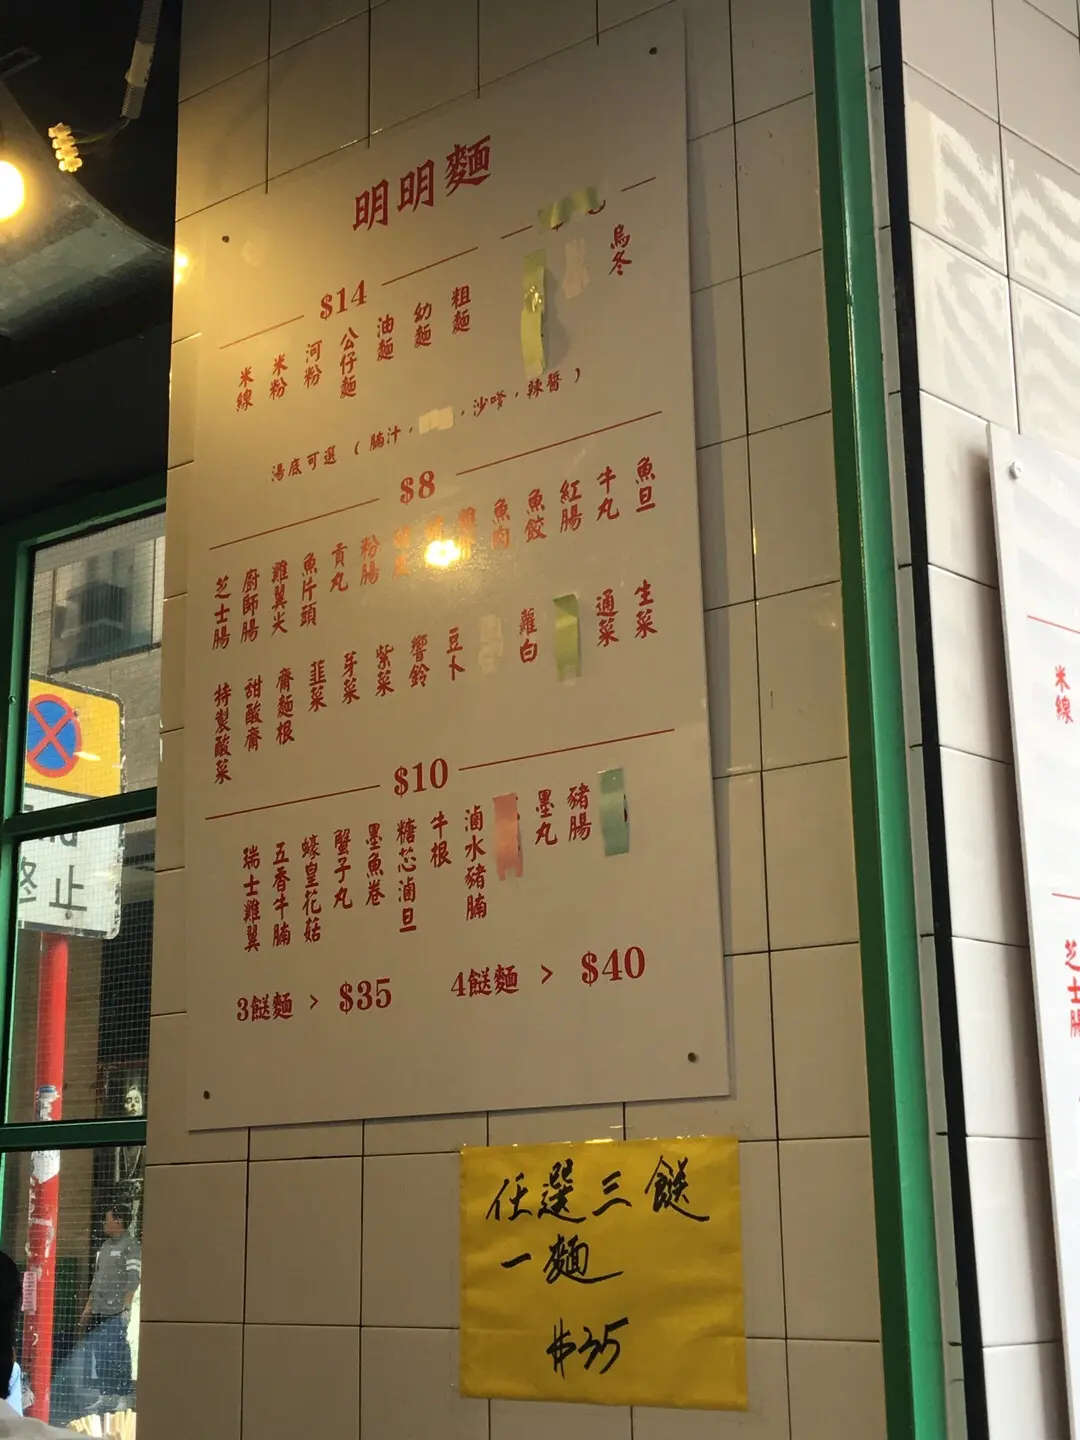 明明麵
$14
烏冬
粗麵
幼麵
油麵
公仔麵
河粉
米粉
米線
湯底可選（腩汁，
，沙嗲，辣醬）
$8
魚旦
牛丸
紅腸
魚餃
魚肉
粉腸
貢丸
魚片頭
雞翼尖
廚師腸
芝士腸
生菜
通菜
蘿白
豆卜
響鈴
紫菜
芽菜
韮菜
齋麵根
甜酸齋
特製酸菜
$10
豬腸
墨丸
滷水豬腩
牛根
糖芯滷旦
墨魚卷
蟹子丸
蠔皇花菇
五香牛腩
瑞士雞翼
3餸麵 > $35
4餸麵 > $40
任選三餸
一麵
$35
米線
芝士腸
終止